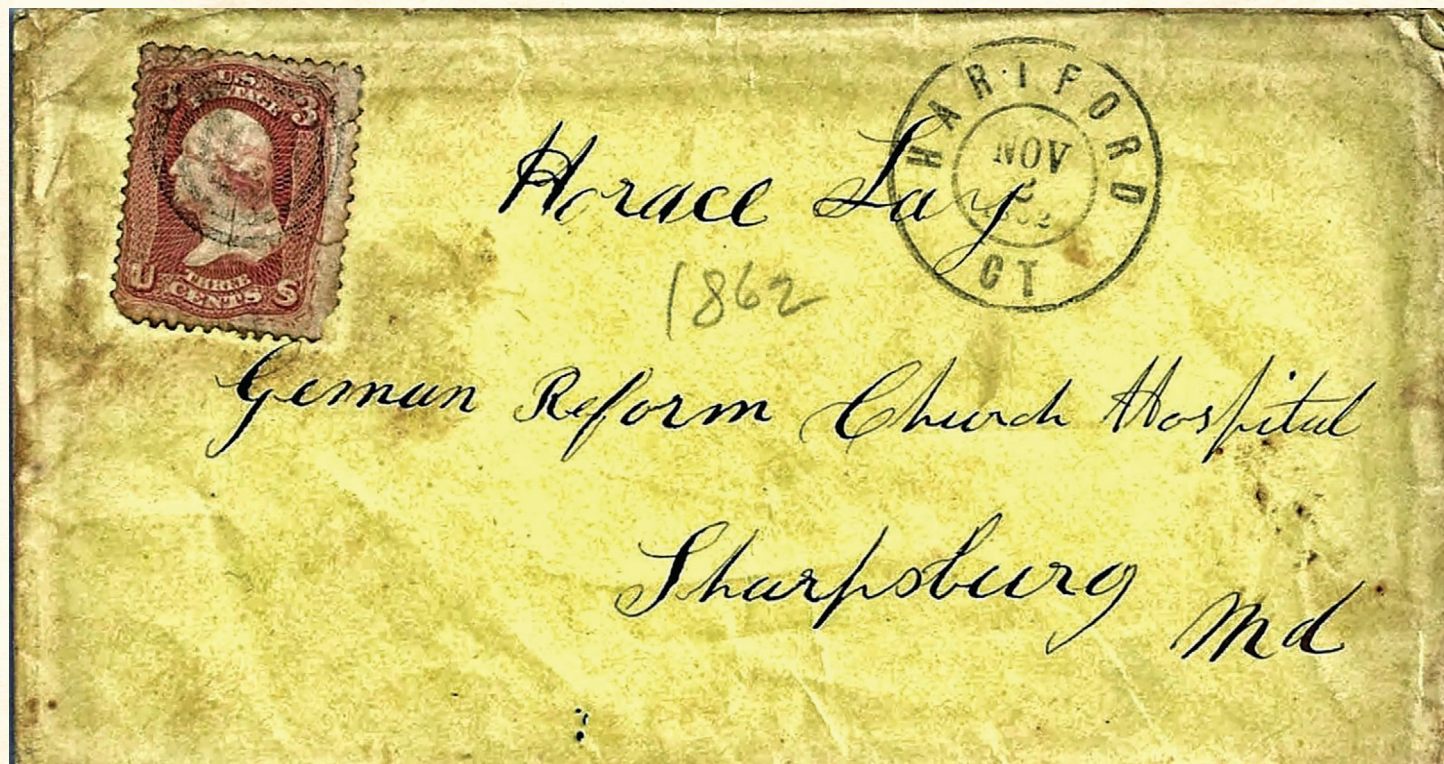 U.S.
POSTAGE
3 3
U THREE S
CENTS
HARTFORD
NOV
CT
Horace Lay
1862
Geman Reform Church Hospital
Sharpsburg
Md